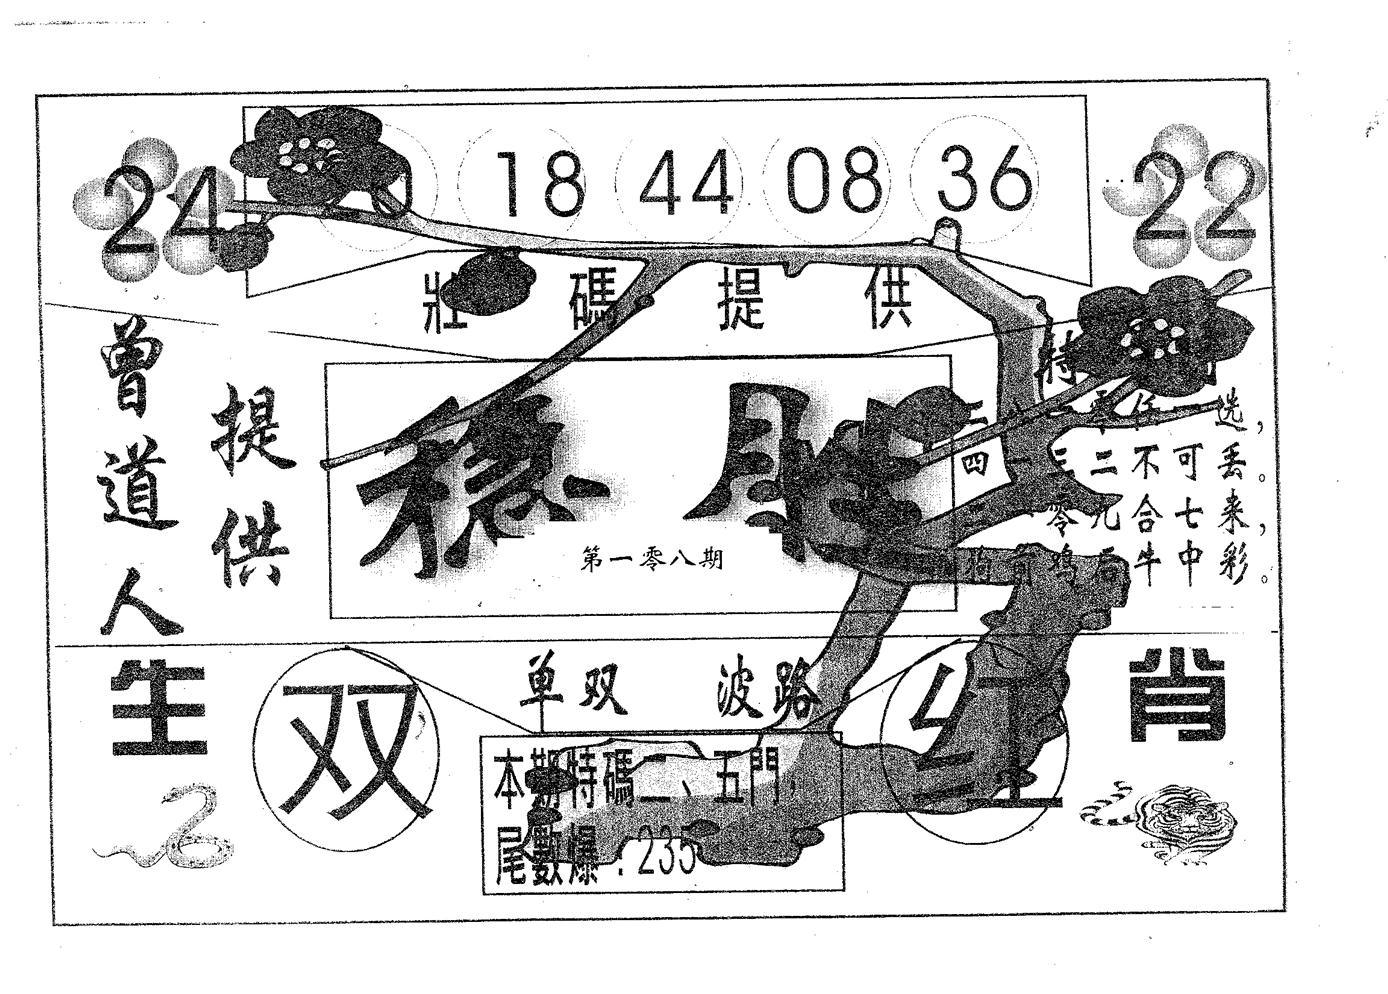 24 0 18 44 08 36 22
壯碼提供
曾道人
提供
穩
第一零八期
特
零 一选，
四一三二不可丢。
零九合七来，
鸡 牛中彩。
生肖
双 红
单双 波路
本期特碼二、五門，
尾數爆：235